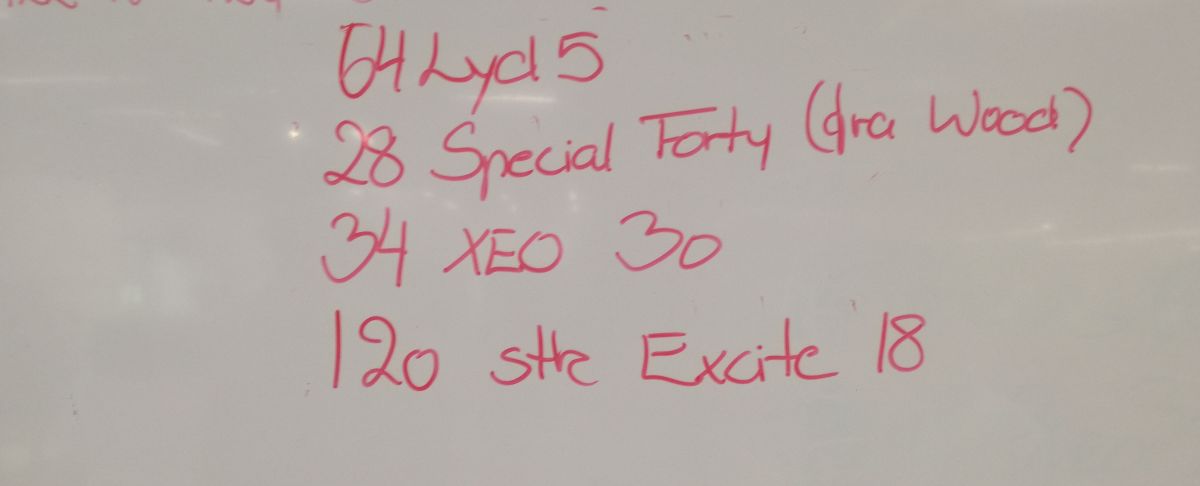 64 Lyd 5
28 Special Forty (fra Wood)
34 XEO 30
120 stk Excite 18